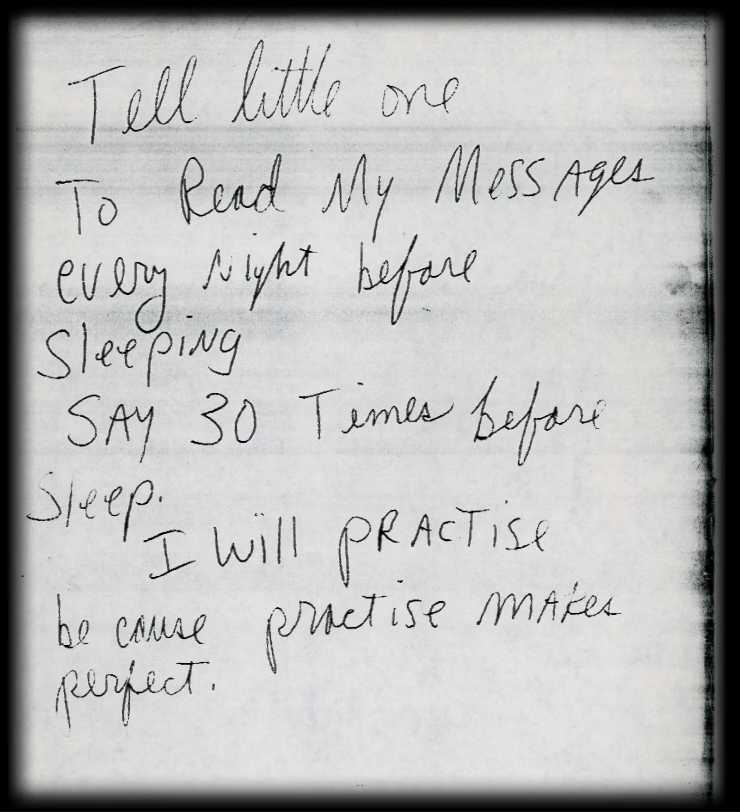 Tell little one
To Read My Messages
every Night before
Sleeping
SAY 30 Times before
Sleep.
I Will PRACTISE
be cause practise MAKes
perfect.